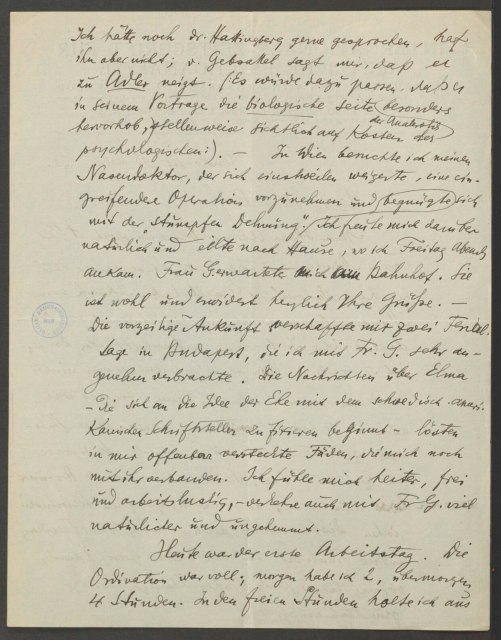 Ich hätte noch dr. Hattingberg gerne gesprochen, traf
ihn aber nicht; v. Gebsattel sagt mir, daß er
zu Adler neigt. (:Es würde dazu passen, daß er
in seinem Vortrage die biologische Seite besonders
der Analerotik
hervorhob, stellenweise sichtlich auf Kosten der
psychologischen:). — In Wien besuchte ich meinen
Nasendoktor, der sich einstweilen weigerte, eine ein-
greifendere Operation vorzunehmen und begnügte sich
mit der "stumpfen Dehnung". Ich freute mich darüber
natürlich und eilte nach Hause, wo ich Freitag Abends
ankam. Frau G. erwartete mich am Bahnhof. Sie
ist wohl und erwidert herzlich Ihre Grüße. —
Die vorzeitige Ankunft verschaffte mir zwei Ferial-
tage in Budapest, die ich mit Fr. G. sehr an-
genehm verbrachte. Die Nachrichten über Elma
– die sich an die Idee der Ehe mit dem schwedisch-ameri-
kanischen Schriftsteller zu fixieren beginnt – lösten
in mir offenbar versteckte Fäden, die mich noch
mit ihr verbanden. Ich fühle mich heiter, frei
und arbeitslustig, – verkehre auch mit Fr G. viel
natürlicher und ungehemmt.
Heute war der erste Arbeitstag. Die
Ordination war voll; morgen habe ich 2, übermorgen
4 Stunden. In den freien Stunden holte ich aus